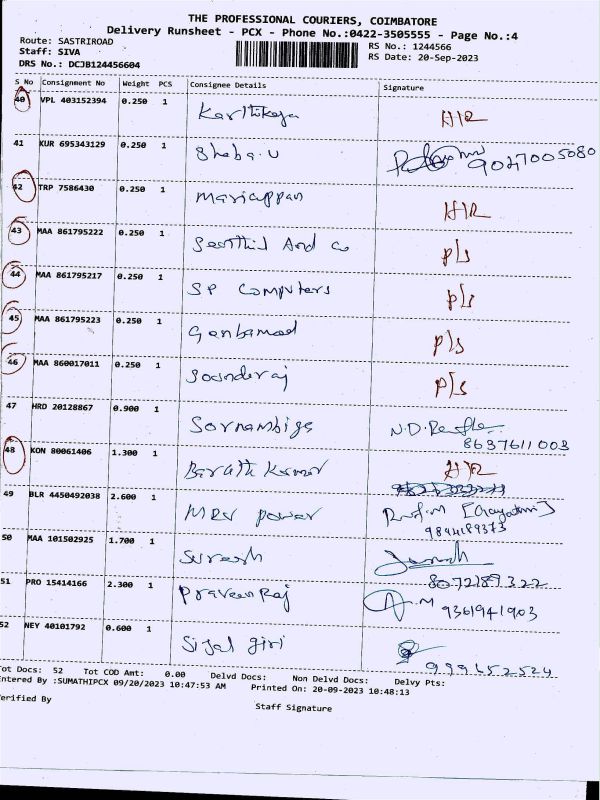 THE PROFESSIONAL COURIERS, COIMBATORE
Delivery Runsheet - PCX - Phone No.:0422-3505555 - Page No.:4
Route: SASTRIROAD RS No.: 1244566
Staff: SIVA RS Date: 20-Sep-2023
DRS No.: DCJB124456604
S No Consignment No Weight PCS Consignee Details Signature
40 VPL 403152394 0.250 1 Karthikeya H/R
41 KUR 695343129 0.250 1 Sheba.U 9047005080
42 TRP 7586430 0.250 1 Mariappan H/R
43 MAA 861795222 0.250 1 Senthil And Co P/s
44 MAA 861795217 0.250 1 SP Computers P/s
45 MAA 861795223 0.250 1 P/s
46 MAA 860017011 0.250 1 Soonderaj P/s
47 HRD 20128867 0.900 1 Sornambiga N.D.
8637611003
48 KON 80061406 1.300 1 Barath Kumar H/R
49 BLR 4450492038 2.600 1 MRV Power [Gayathri]
9844189373
50 MAA 101502925 1.700 1 Suresh
8072189322
51 PRO 15414166 2.300 1 Praveen Raj 9361941903
52 NEY 40101792 0.600 1 Sijal giri
999652524
Tot Docs: 52 Tot COD Amt: 0.00 Delvd Docs: Non Delvd Docs: Delvy Pts:
Entered By :SUMATHIPCX 09/20/2023 10:47:53 AM Printed On: 20-09-2023 10:48:13
Verified By Staff Signature